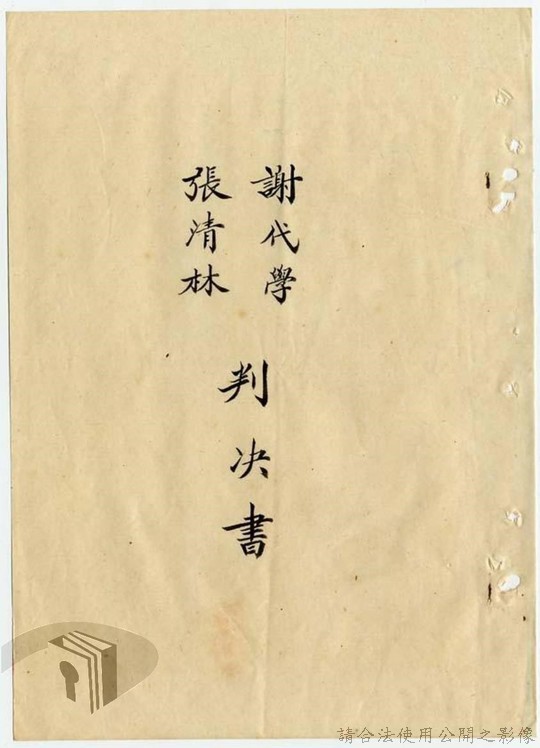 謝代學
張清林
判决書
請合法使用公開之影像